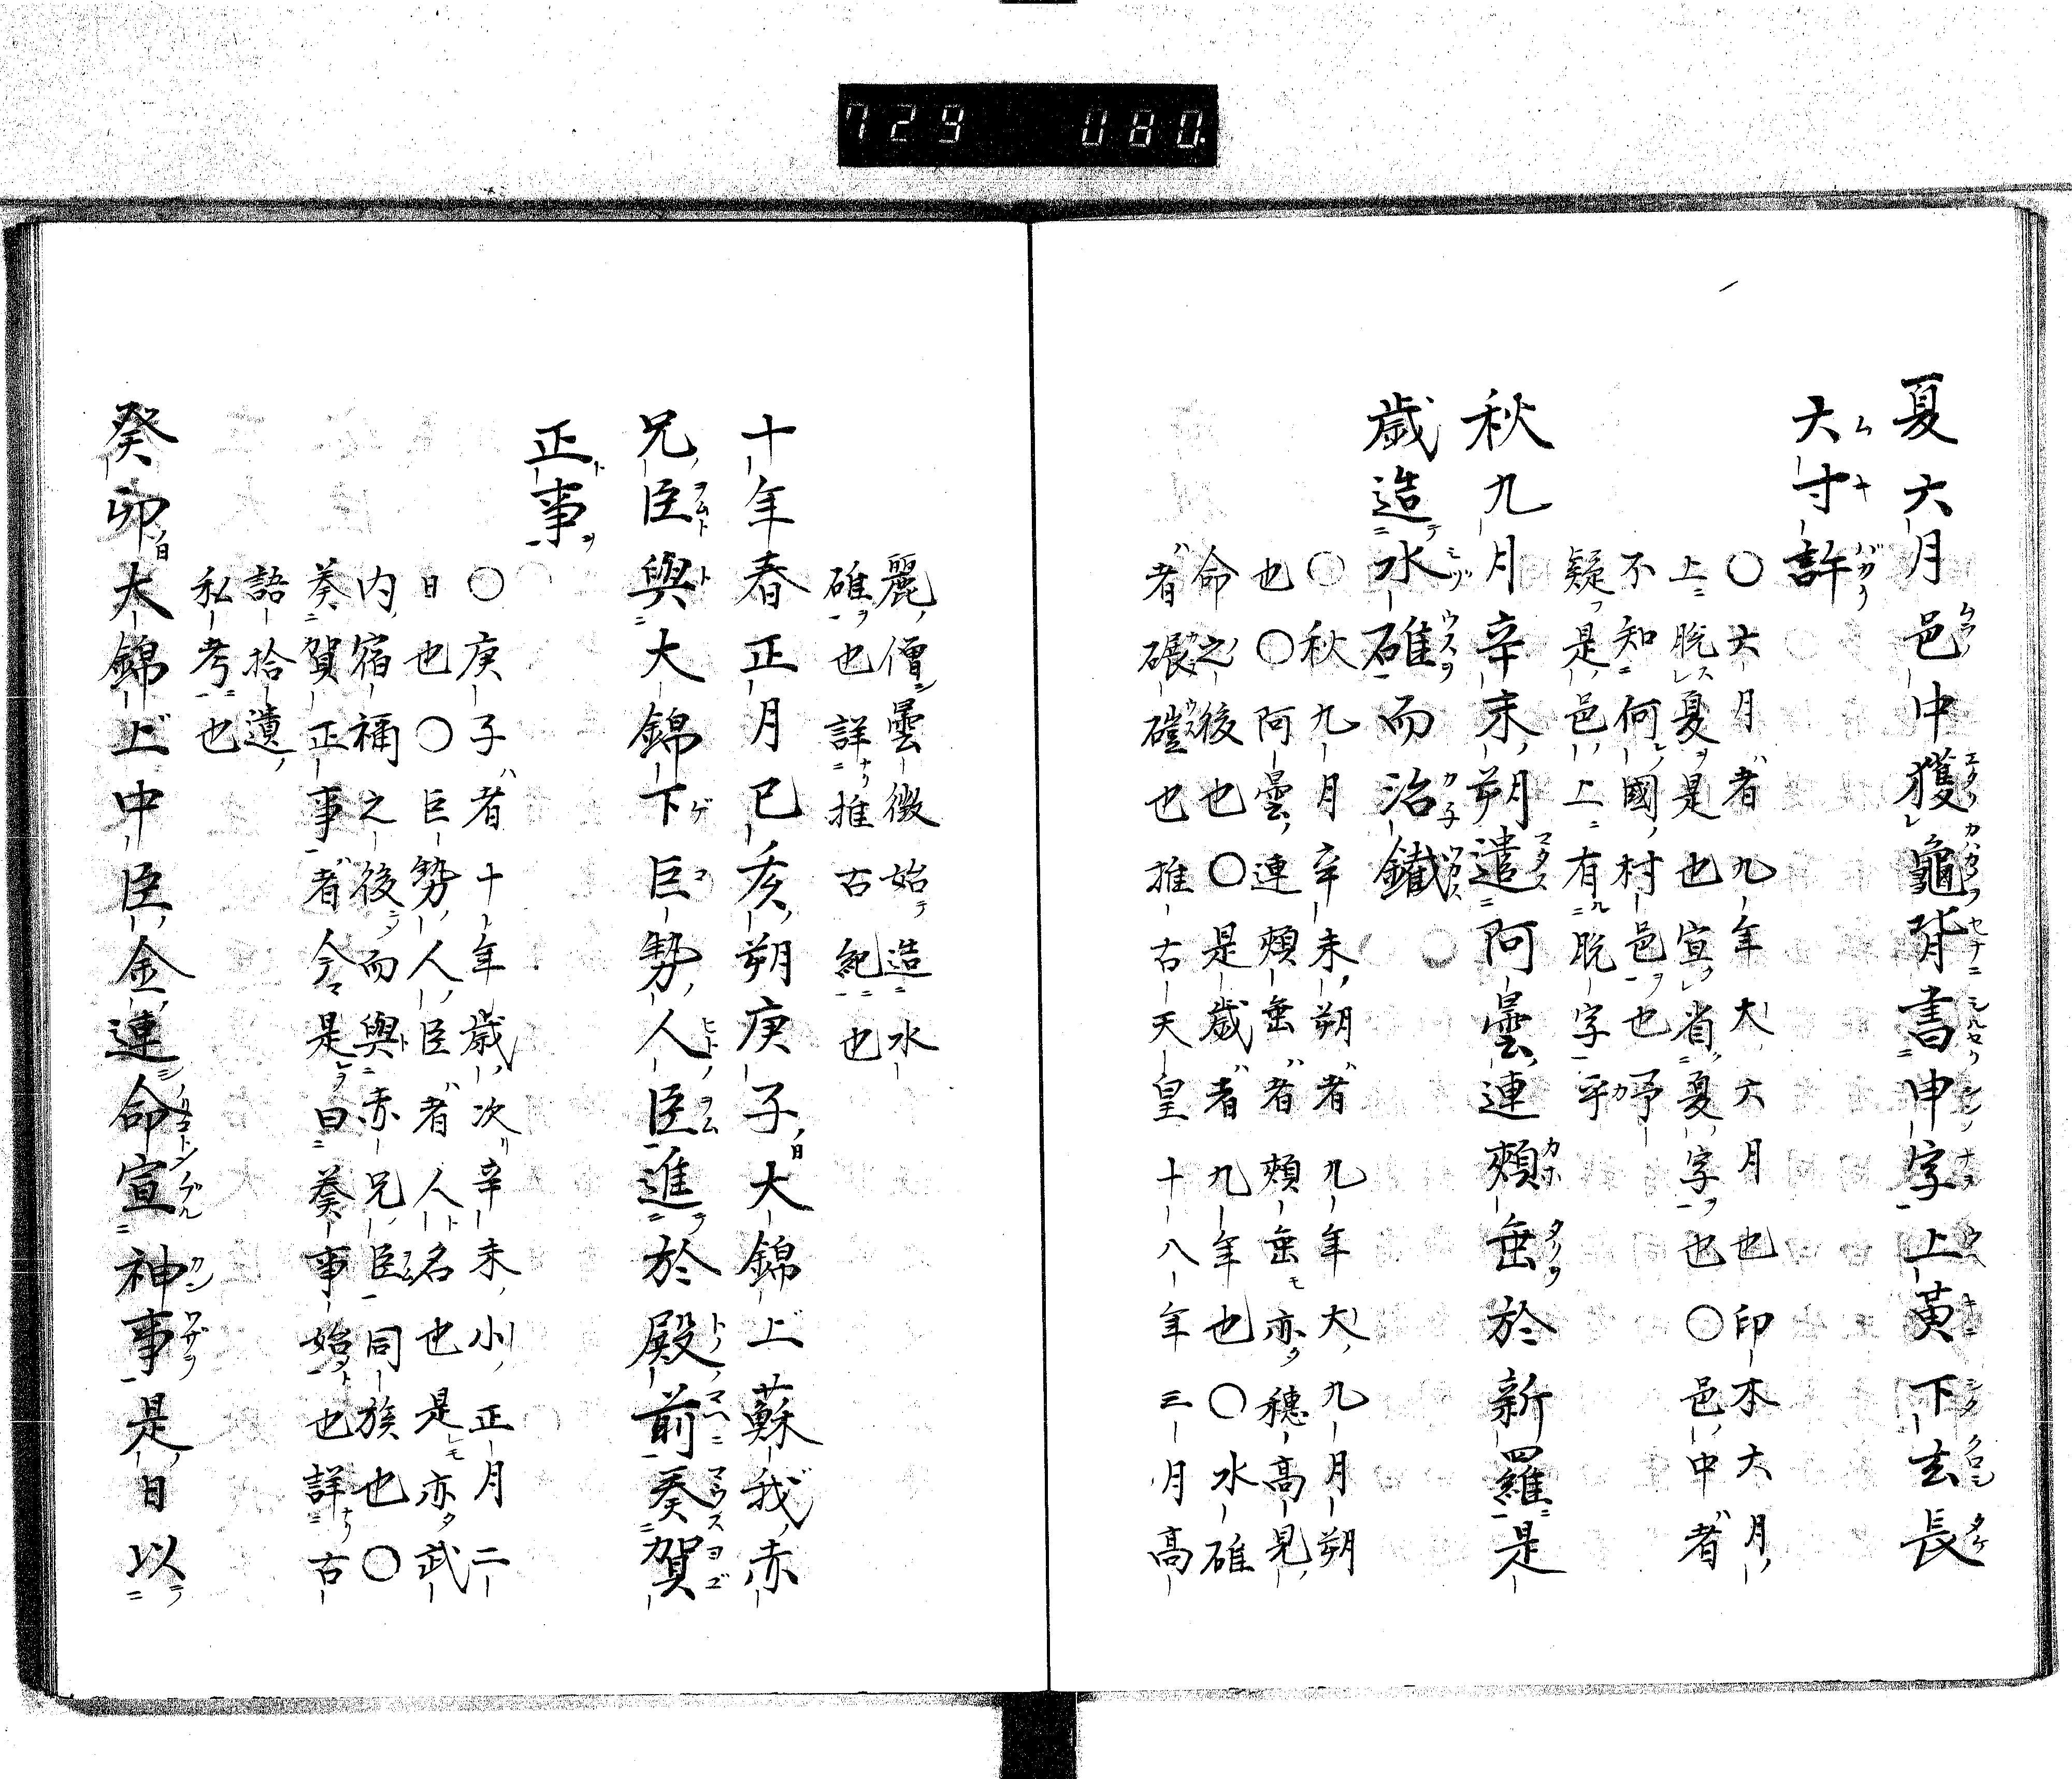 729 080.
夏六月邑中獲龜背書申字上黃下玄長
大寸許
〇六月者九年大六月也印本大月
上脫夏是也宜省夏字也〇邑中者
不知何國村邑也予
疑是邑上有脫字乎
秋九月辛未朔遣阿曇連頰垂於新羅是
歲造水碓而治鐵
〇秋九月辛未朔者九年大九月朔
也〇阿曇連頰垂者頰垂亦穗高見
命之後也〇是歲者九年也〇水碓
者碾磑也推古天皇十八年三月高
麗僧曇徵始造水
碓也詳推古紀也
十年春正月已亥朔庚子大錦上蘇我赤
兄臣與大錦下巨勢人臣進於殿前奏賀
正事
〇庚子者十年歲次辛未小正月二
日也〇巨勢人臣者人名也是亦武
內宿禰之後而與赤兄臣同族也〇
奏賀正事者今是曰奏事始也詳古
語拾遺
私考也
癸卯大錦上中臣金連命宣神事是日以